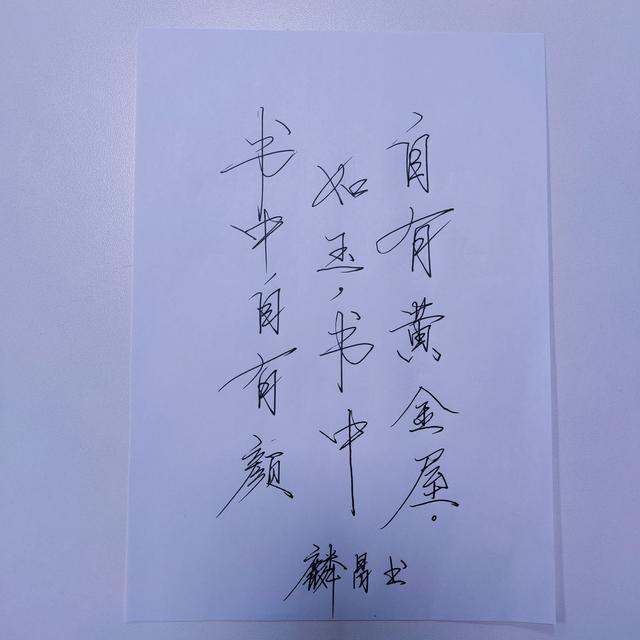 书中自有颜
如玉，书中
自有黄金屋。
麟昌书